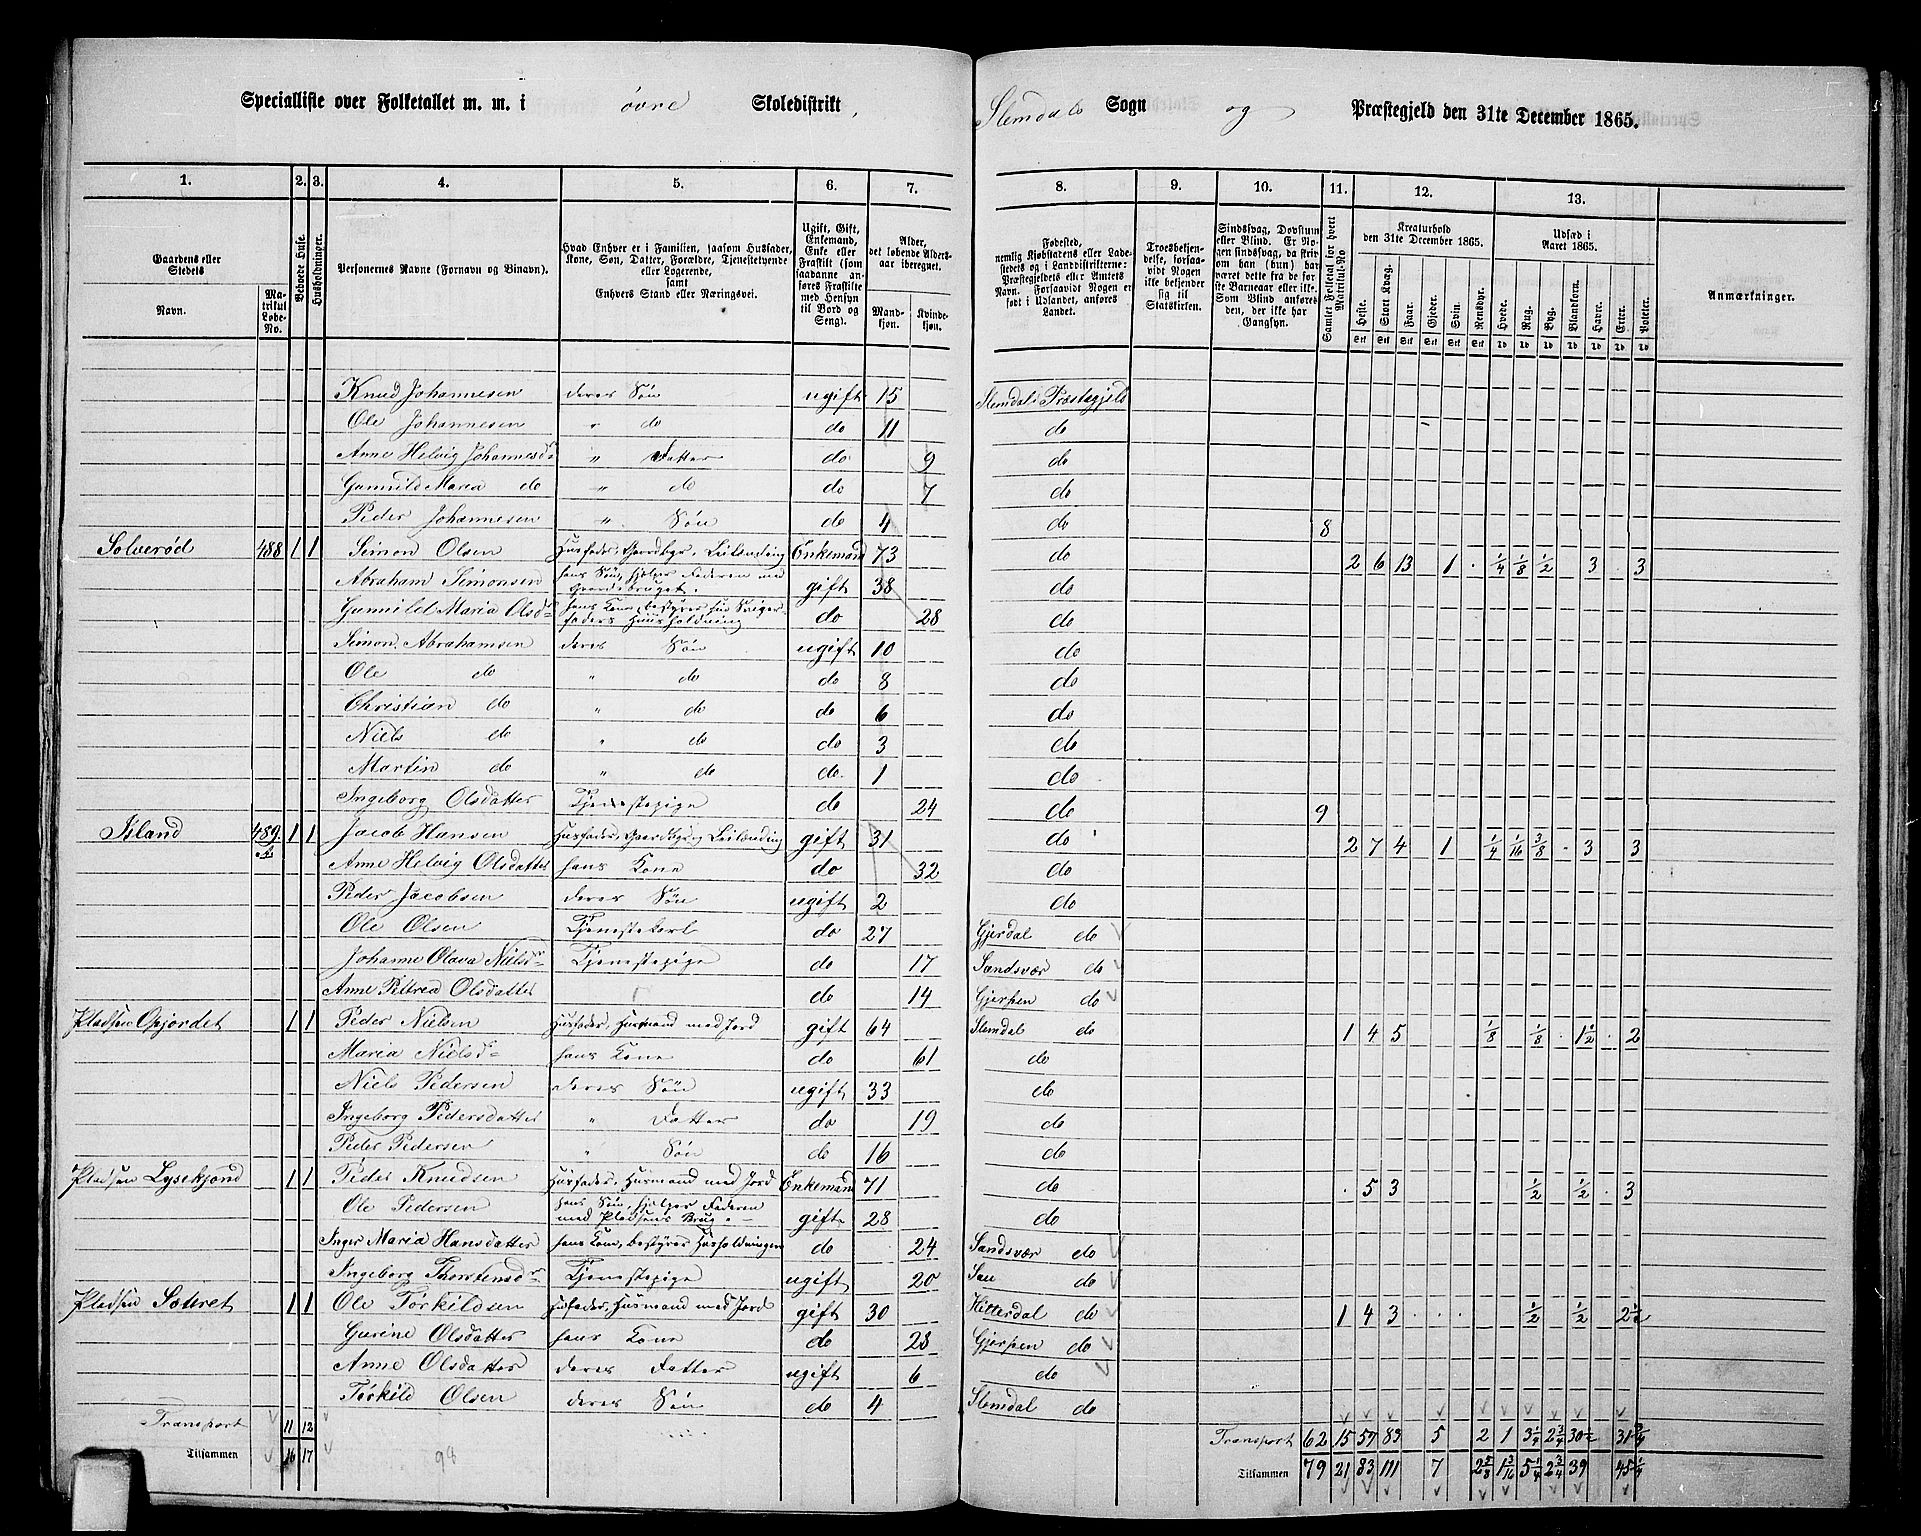 Specialliste over Folketallet m. m. i øvre Skoledistrikt, Slemdals Sogn og Præstegjeld den 31te December 1865.
1. 2. 3. 4. 5. 6. 7. 8. 9. 10. 11. 12. 13.
Gaardens eller Stedets
Navn.
Matrikul Løbe-No.
Beboede Huse.
Husholdninger.
Personernes Navne (Fornavn og Binavn).
Hvad Enhver er i Familien, saasom Husfader, Kone, Søn, Datter, Forældre, Tjenestetyende eller Logerende, samt Enhvers Stand eller Næringsvei.
Ugift, Gift, Enkemand, Enke eller Fraskilt (som saadanne anføres Fraskilte med Hensyn til Bord og Seng).
Alder, det løbende Aldersaar iberegnet.
Mandkjøn. Kvindekjøn.
Fødested, nemlig Kjøbstadens eller Ladestedets og i Landdistrikterne: Præstegjeldets eller Amtets Navn. Forsaavidt Nogen er født i Udlandet, anføres Landet.
Troesbekjendelse, forsaavidt Nogen ikke bekjender sig til Statskirken.
Sindssvag, Døvstum eller Blind. Er Nogen sindssvag, da skriv om han (hun) har været dette fra første Barneaar eller ikke. Som Blind anføres den, der ikke har Gangsyn.
Samlet Folketal for hvert Matrikul-No
Kreaturhold den 31te December 1865.
Heste. Stort Kvæg. Faar. Gjeder. Svin. Rensdyr.
Udsæd i Aaret 1865.
Hvede. Rug. Byg. Blandkorn. Havre. Erter. Poteter.
Anmærkninger.
Knud Johannesen deres Søn ugift 15 Slemdals Præstegjeld
Ole Johannesen " do do 11 do
Anne Helvig Johannesdr " Datter do 9 do
Gunnild Maria do " do do 7 do
Peder Johannesen " Søn do 4 do 8
Solverød 488 1 1 Simon Olsen Husfader, Gaardbr. Leilænding Enkemand 73 do 2 6 13 1 1/4 1/8 1/2 3 3
Abraham Simonsen hans Søn, hjelper Faderen med Gaardsbruget. gift 38 do
Gunnild Maria Olsdr hans Kone, bestyrer sin Svigerfaders Huusholdning do 28 do
Simon Abrahamsen deres Søn ugift 10 do
Ole do " do do 8 do
Christian do " do do 6 do
Niels do " do do 3 do
Martin do " do do 1 do
Ingeborg Olsdatter Tjenestepige do 24 do 9
Island 489 a 1 1 Jacob Hansen Husfader, Gaardbr. Leilænding gift 31 do 2 7 4 1 1/4 1/16 3/8 3 3
Anne Helvig Olsdatter hans Kone do 32 do
Peder Jacobsen deres Søn ugift 2 do
Ole Olsen Tjenestekarl do 27 Gjerdal do
Johanne Olava Nielsdr Tjenestepige do 17 Sandsvær do
Anne Petrea Olsdatter do 14 Gjerpen do
Pladsen Gjordet 1 1 Peder Nielsen Husfader, Husmand med Jord gift 64 Slemdal do 1 4 5 1/8 1/8 1 1/2 2
Maria Nielsd hans Kone do 61 do
Niels Pedersen deres Søn ugift 33 do
Ingeborg Pedersdatter " Datter do 19 do
Peder Pedersen " Søn do 16 do
Pladsen Lysekjønd 1 1 Peder Knudsen Husfader, Husmand med Jord Enkemand 71 do 5 3 1/2 1/2 3
Ole Pedersen hans Søn, hjelper Faderen med Pladsens Brug gift 28 do
Inger Maria Hansdatter hans Kone, bestyrer Husholdningen do 24 Sandsvær do
Ingeborg Thorstensdr Tjenestepige ugift 20 Sau do
Pladsen Sateret 1 1 Ole Torkildsen Husfader, Husmand med Jord gift 30 Hitterdal do 1 4 3 1/2 1/2 2 1/2
Gurine Olsdatter hans Kone do 28 Gjerpen do
Anne Olsdatter deres Datter ugift 6 do
Torkild Olsen deres Søn do 4 Slemdal do
Transport 11 12 Transport 62 15 57 83 5 2 1 3 1/4 2 3/4 30 1/2 31 3/4
Tilsammen 16 17 98 Tilsammen 79 21 83 111 7 2 5/8 1 3/16 5 1/4 2 3/4 39 45 1/4